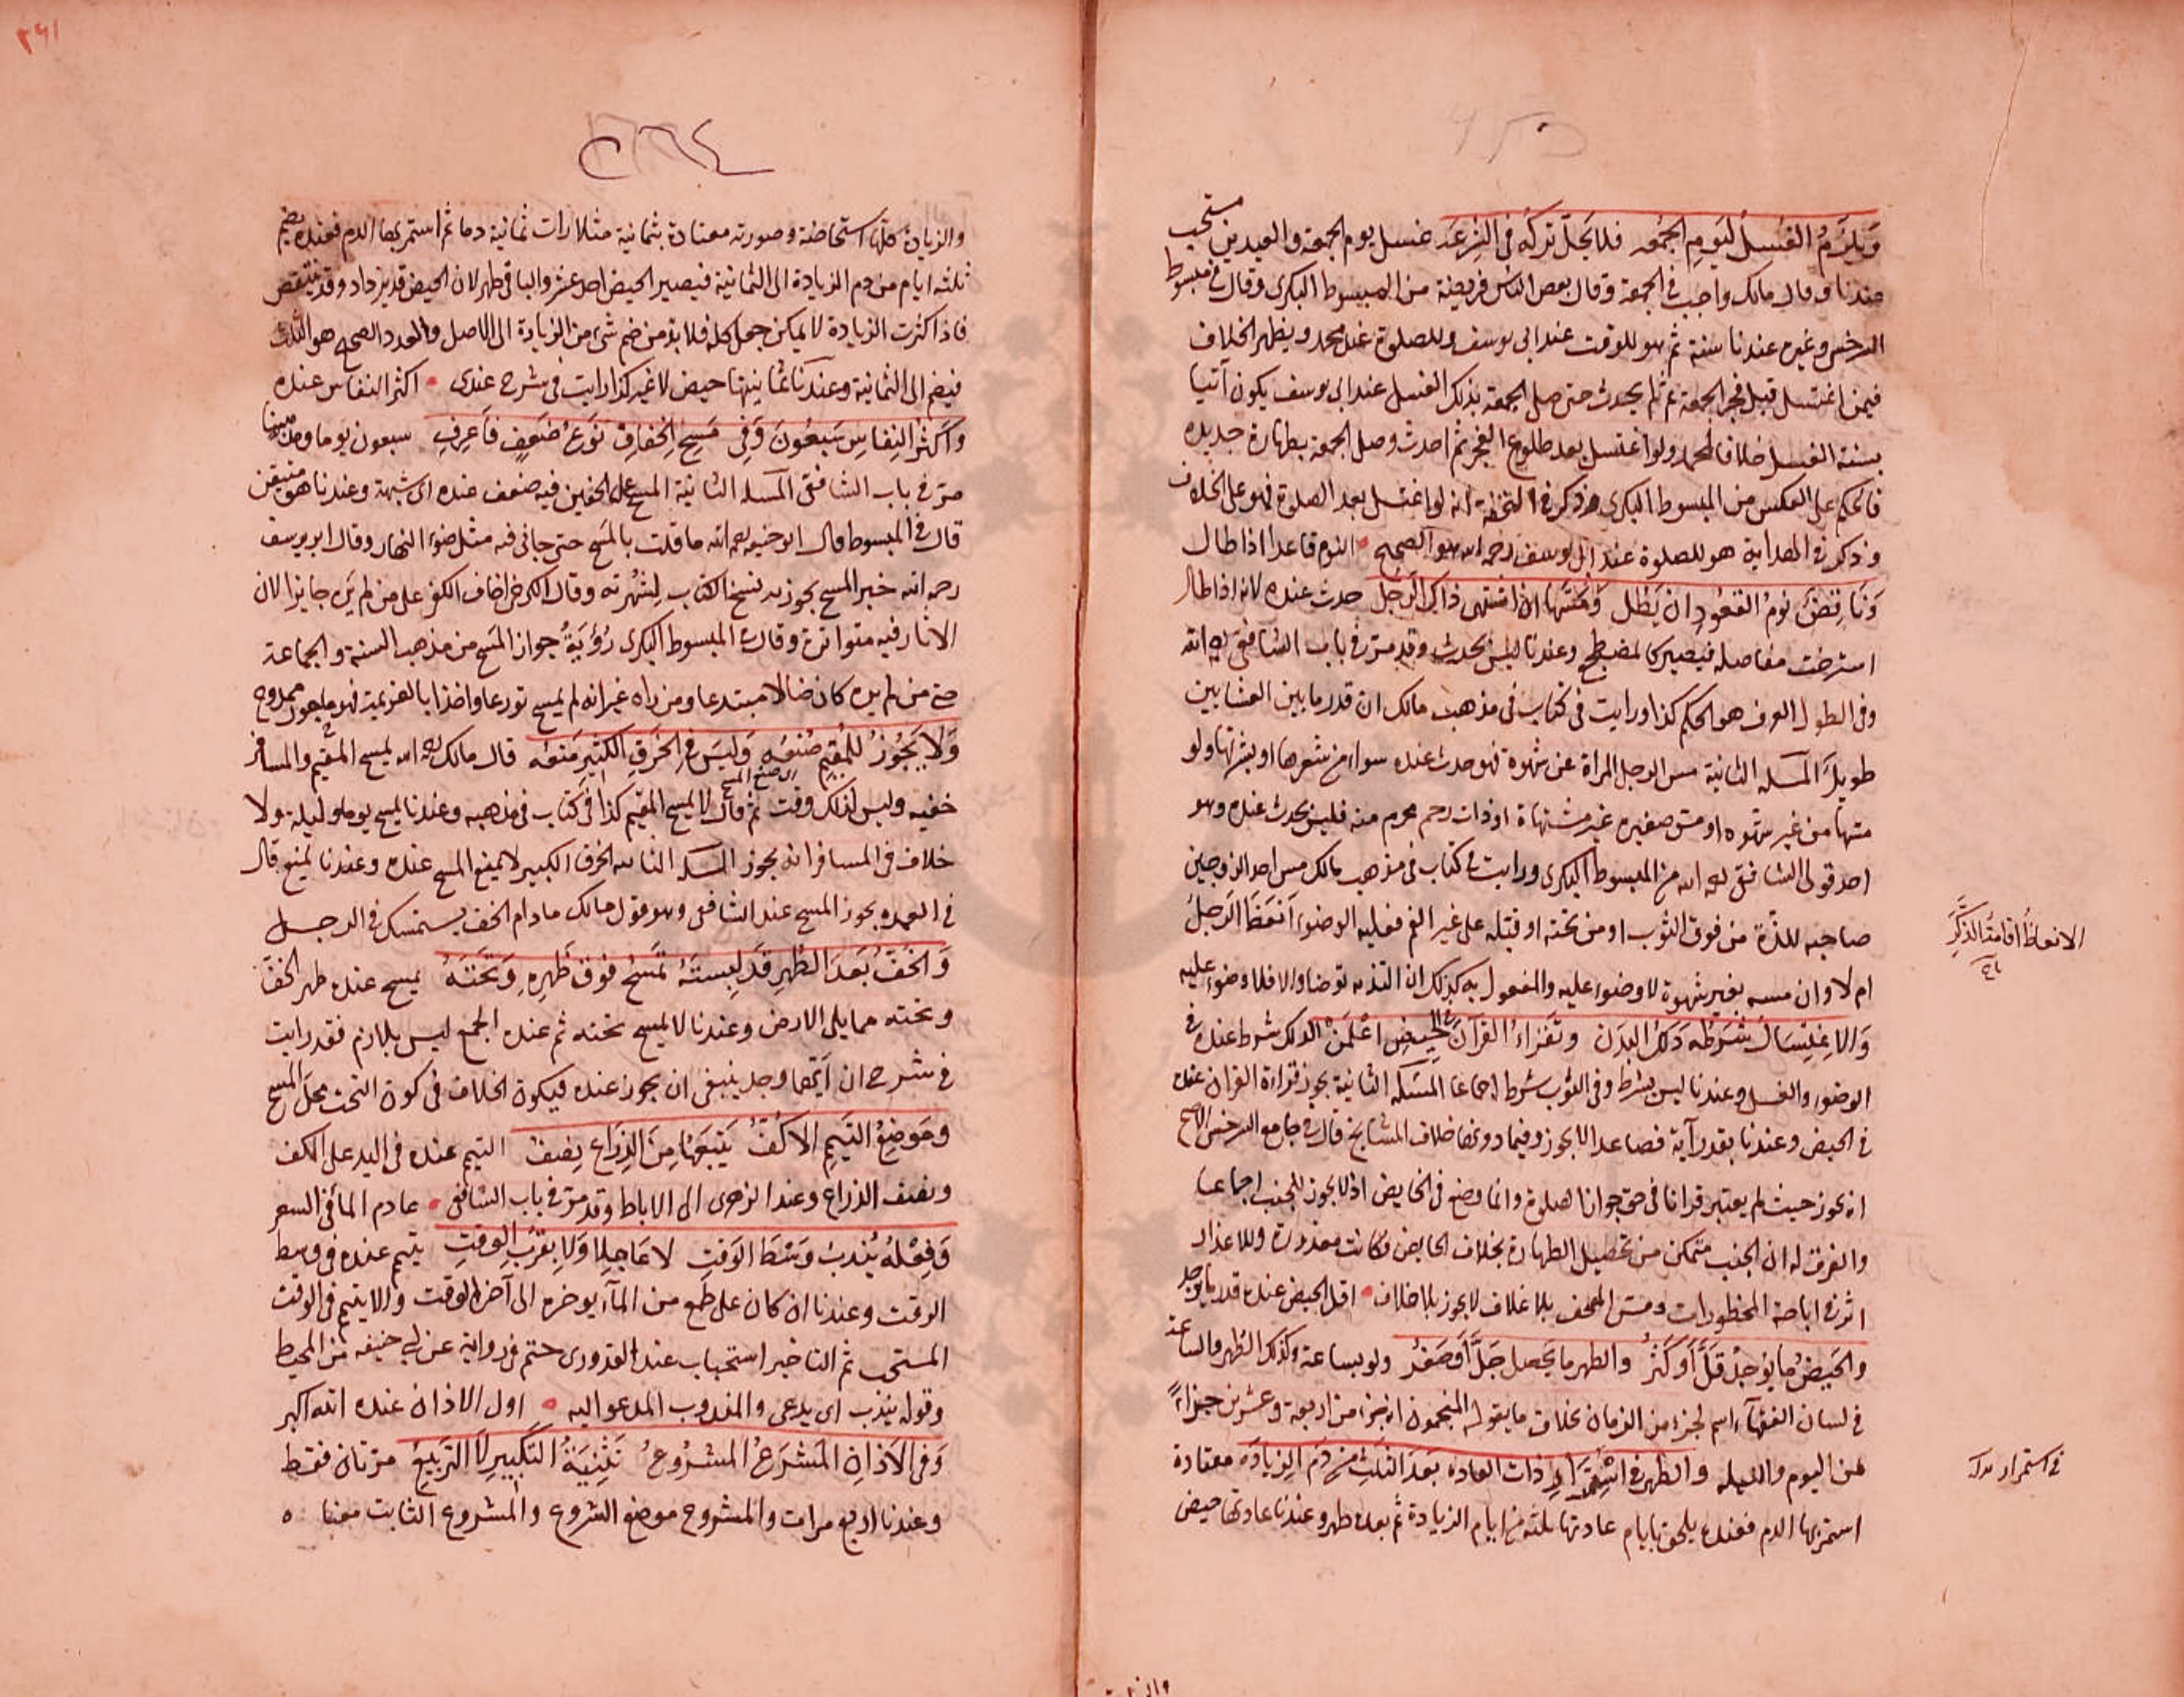 ويلزم الغسل ليوم الجمعه فلا يحل تركه فى الشرعه غسل يوم الجمعة والعيدين مستحب
عندنا وقال مالك واجب فى الجمعة وقال بعض الناس فريضة من المبسوط البكرى وقال فى مبسوط
السرخسى وغيره عندنا سنة ثم هو للوقت عند ابى يوسف وللصلوة عند محمد ويظهر الخلاف
فيمن اغتسل قبل فجر الجمعة ثم لم يحدث حتى صلى الجمعة بذلك الغسل عند ابى يوسف يكون آتيا
بسنة الغسل خلافا لمحمد ولو اغتسل بعد طلوع الفجر ثم احدث وصلى الجمعة بطهارة جديده
فالحكم على العكس من المبسوط البكرى وذكر فى التحفة انه لو اغتسل بعد الصلوة فهو على الخلاف
وذكر فى الهداية هو للصلوة عند ابى يوسف رحمه الله هو الصحيح النوم قاعدا اذا طال
وناقض نوم القعود ان يطل ومسها اذا اشتهى ذاك الرجل حدث عنده لانه اذا طال
استرخت مفاصله فيصير كالمضطجع وعندنا ليس بحدث وقد مر فى باب الشافعى رحمه الله
وفى الطول العرف هو الحكم كذا ورايت فى كتاب فى مذهب مالك ان قدر ما بين العشايين
طويل المسله الثانية مس الرجل المراة عن شهوة فهو حدث عنده سواء مس شعرها او بشرتها ولو
مسها من غير شهوه او مس صغيره غير مشتهاة او ذات رحم محرم منه فليس بحدث عنده وهو
احد قولى الشافعى رحمه الله من المبسوط البكرى ورايت فى كتاب فى مذهب مالك مس احد الزوجين
صاحبه للذة من فوق الثوب او من تحته او قبله على غير الفم فعليه الوضوء انعظ الرجل
ام لا وان مسه بغير شهوة لا وضوء عليه والمفعول به كذلك ان التذ به توضا والا فلا وضوء عليه
والاغتسال شرطه دلك البدن وتقراء القرآن فى الحيض اعلمن الدلك شرط عنده فى
الوضوء والغسل وعندنا ليس بشرط وفى الثوب شرط اجماعا المسئله الثانية يجوز قراءة القران عنده
فى الحيض وعندنا بقدر آية فصاعدا لا يجوز وفيما دونها خلاف المشايخ قال فى جامع السرخسى الاصح
انه يجوز حيث لم يعتبر قرانا فى حق جواز الصلوة وانما وضع فى الحايض اذ لا يجوز للجنب اجماعا
والفرق له ان الجنب متمكن من تحصيل الطهارة بخلاف الحايض فكانت معذورة وللاعذار
اثر فى اباحة المحظورات ومس المصحف بلا غلاف لا يجوز بلا خلاف اقل الحيض عنده قدر ما يوجد
والحيض ما يوجد قل او كثر والطهر ما يحصل جل او صغر ولو بساعة وكذلك الطهر والساعة
فى لسان الفقهاء اسم لجزء من الزمان بخلاف ما يقوله المنجمون انه جزء من اربعة وعشرين جزاءً
من اليوم والليله والطهر فى استمرار ذات العاده بعد الثلث من دم الزيادة معتادة
استمر بها الدم فعنده يلحق بايام عادتها ثلثة من ايام الزيادة ثم بعده طهر وعندنا عادتها حيض
الانعاظ اقامة الذكر
فى استمرار
٢٩١
والزيادة كلها استحاضة وصورته معتادة بثمانية مثلا رات ثمانية دما ثم استمر بها الدم فعنده يضم
ثلثه ايام من دم الزيادة الى الثمانية فيصير الحيض احد عشر والباقى طهر لان الحيض قد يزداد وقد ينتقص
فاذا كثرت الزيادة لا يمكن جعل كله فلا بد من ضم شىء من الزيادة الى الاصل والعدد الصحيح هو الثلث
فيضم الى الثمانية وعندنا ثمانيتها حيض لا غير كذا رايت فى شرح عندى اكثر النفاس عنده
واكثر النفاس سبعون وفى مسح الخفاف نوع ضعف فاعرف سبعون يوما وعندنا
مر فى باب الشافعى المسله الثانية المسح على الخفين فيه ضعف عنده اى شبهة وعندنا هو متيقن
قال فى المبسوط قال ابو حنيفه رحمه الله ما قلت بالمسح حتى جانى فيه مثل ضوء النهار وقال ابو يوسف
رحمه الله خبر المسح يجوز به نسخ الكتاب لشهرته وقال الكرخى اخاف الكفر على من لم يره جايزا لان
الاثار فيه متواترة وقال فى المبسوط البكرى رؤية جواز المسح من مذهب السنة والجماعة
حتى من لم يره كان ضالا مبتدعا ومن راه غير انه لم يمسح تورعا واخذا بالعزيمة فهو ممدوح
ولا يجوز للمقيم صنعه وليس فى الخرق الكثير منعه قال مالك رحمه الله يمسح المقيم والمسافر
خفيه وليس لذلك وقت ثم قال لا يمسح المقيم كذا فى كتاب فى مذهبه وعندنا يمسح يوما وليلة ولا
خلاف فى المسافر انه يجوز المسله الثانيه الخرق الكبير لا يمنع المسح عنده وعندنا يمنع قال
فى العمده يجوز المسح عند الشافعى وهو قول مالك ما دام الخف يستمسك فى الرجل
والخف بعد الطهر قد لبسته تمسح فوق ظهره وتحته يمسح عنده ظهر الخف
وتحته مما يلى الارض وعندنا لا يمسح تحته ثم عنده الجمع ليس بلازم فقد رايت
فى شرح ان ايهما وجد ينبغى ان يجوز عنده فيكون الخلاف فى كون التحت محل المسح
وموضع التيمم الاكف يتبعها من الذراع نصف التيمم عنده فى اليد على الكف
ونصف الذراع وعند الزهرى الى الاباط وقد مر فى باب الشافعى عادم الماء فى السفر
وفعله يندب وسط الوقت لا عاجلا ولا بقرب الوقت يتيمم عنده فى وسط
الوقت وعندنا ان كان على طمع من الماء يوخره الى آخر الوقت والا يتيمم فى الوقت
المستحب ثم التاخير استحباب عند القدورى حتم فى رواية عن ابى حنيفه من المحيط
وقوله يندب اى يدعى والمندوب المدعو اليه اول الاذان عنده الله اكبر
وفى الاذان المشرع المشروع تثنية التكبير لا التربيع مرتان فقط
وعندنا اربع مرات والمشروع موضع الشروع والمشروع الثابت معنا